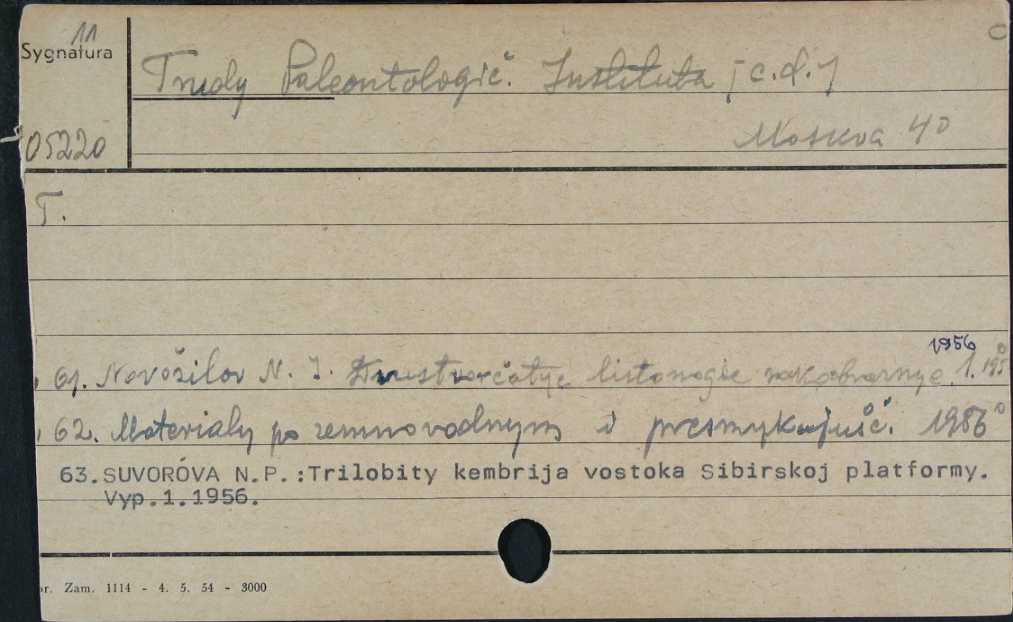 11
Sygnatura
Trudy Paleontologič. Instituta [c.d.]
05220
Moskva 4°
T.
61. Novožilov N. I. Dvustvorčatye listonogie rakoobraznye. 1. 195
1956
62. Materialy po zemnovodnym i presmykajušč. 1956
63.SUVOROVA N.P.:Trilobity kembrija vostoka Sibirskoj platformy.
Vyp.1.1956.
r. Zam. 1114 - 4. 5. 54 - 3000